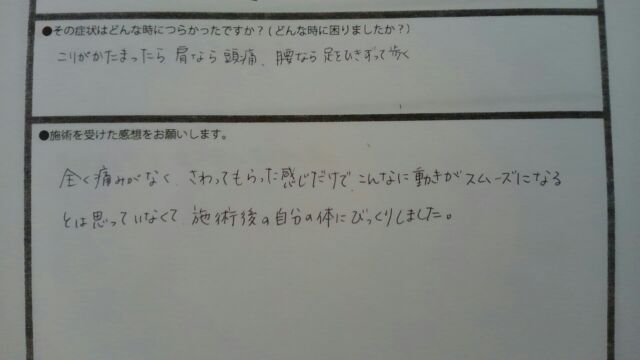 ●その症状はどんな時につらかったですか？(どんな時に困りましたか？)
こりがかたまったら 肩なら頭痛、腰なら足をひきずって歩く
●施術を受けた感想をお願いします。
全く痛みがなく、さわってもらった感じだけで、こんなに動きがスムーズになる
とは思っていなくて、施術後の自分の体にびっくりしました。